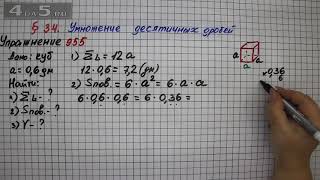 4 DA 5 .RU
§ 34. Умножение десятичных дробей
Упражнение 955
Дано: куб
a = 0,6 дм
Найти:
1) Σь - ?
2) Sпов. - ?
3) V - ?
1) Σь = 12 a
12 · 0,6 = 7,2 (дм)
2) Sпов. = 6 · a² = 6 · a · a
6 · 0,6 · 0,6 = 6 · 0,36 =
a
a
a
× 0,36
6